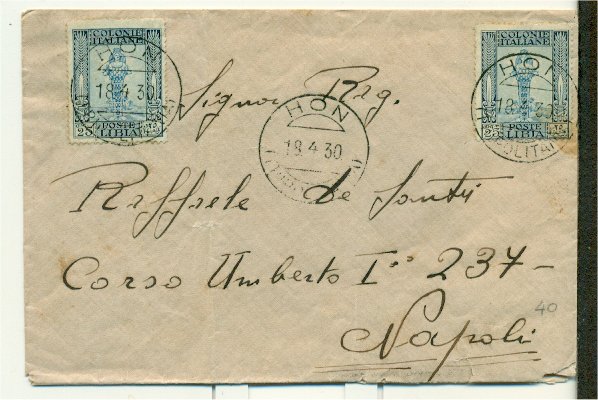 COLONIE
ITALIANE
25 POSTE
LIBIA
HON
18.4.30
COLONIE
ITALIANE
25 POSTE
LIBIA
HON
18.4.30
HON
18.4.30
Signor Rag.
Raffaele de Santis
Corso Umberto I° 237-
Napoli
40